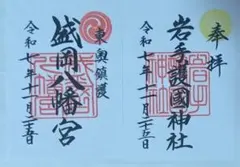 奉拝
岩手護國神社
令和七年十一月二十五日
東奥鎮護
盛岡八幡宮
令和七年十一月二十五日